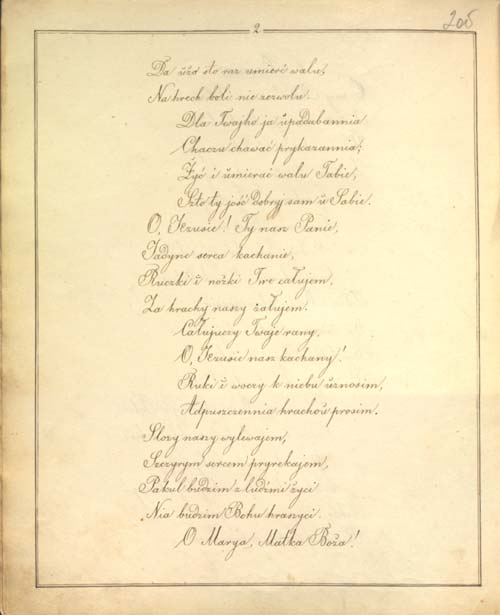 2
205
Da ŭżo sto raz umierć walu,
Na hrech boli nie zezwolu.
Dla Twajho ja ŭpadabannia
Chaczu chawać prykazannia;
Żyć i ŭmierać walu Tabie,
Szto ty jość dobry sam ŭ Sabie.
O, Jezusie! Ty nasz Panie,
Jadyne serca kachanie,
Ruczki ĭ nożki Twe całujem,
Za hrachy naszy żałujem.
Całujuczy Twaje rany,
O, Jezusie nasz kachany!
Ruki ĭ woczy k niebu ŭznosim,
Adpuszczennia hrachoŭ prosim.
Slozy naszy wylewajem,
Szczyrym sercem pryrekajem,
Pakul budzim z ludźmi życi
Nia budzim Bohu hraszyci.
O Marya, Matka Boża!